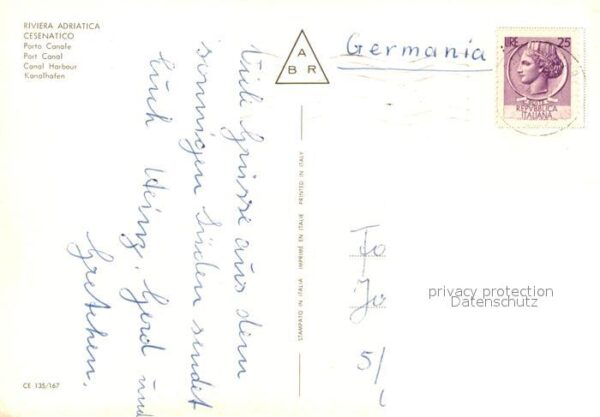 RIVIERA ADRIATICA
CESENATICO
Porto Canale
Port Canal
Canal Harbour
Kanalhafen
A
B R
Germania
LIRE 25
POSTE
REPVBBLICA
ITALIANA
Viele Grüsse aus dem
sonnigen Süden sendet
Euch Heinz, Gerd und
Gretchen.
STAMPATO IN ITALIA IMPRIMÉ EN ITALIE PRINTED IN ITALY
privacy protection
Datenschutz
CE 135/167